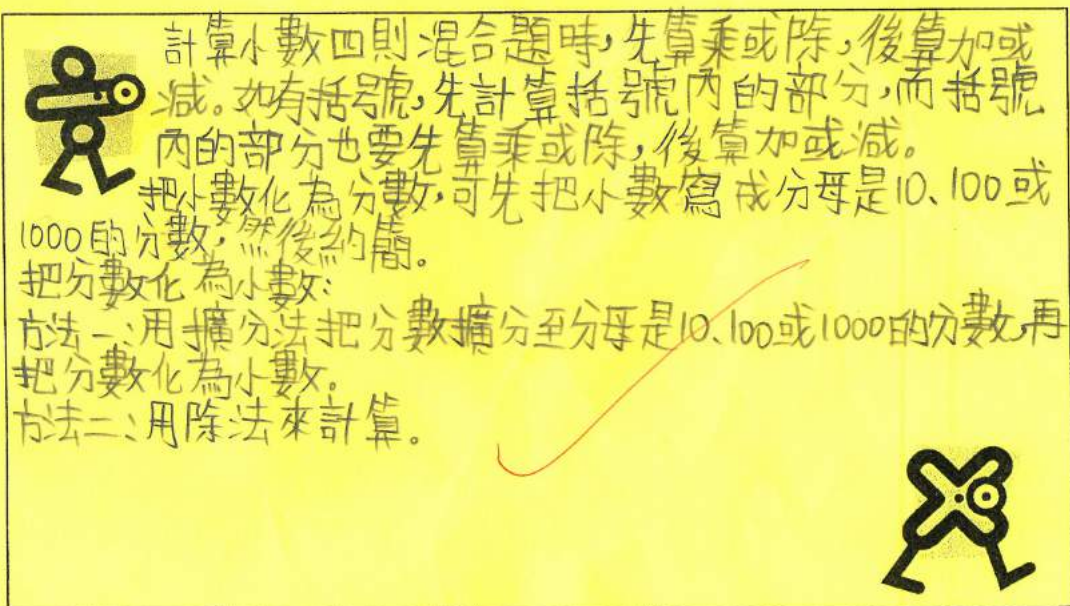 計算小數四則混合題時，先算乘或除，後算加或
減。如有括號，先計算括號內的部分，而括號
內的部分也要先算乘或除，後算加或減。
把小數化為分數，可先把小數寫成分母是10、100或
1000的分數，然後約簡。
把分數化為小數：
方法一：用擴分法把分數擴分至分母是10、100或1000的分數，再
把分數化為小數。
方法二：用除法來計算。